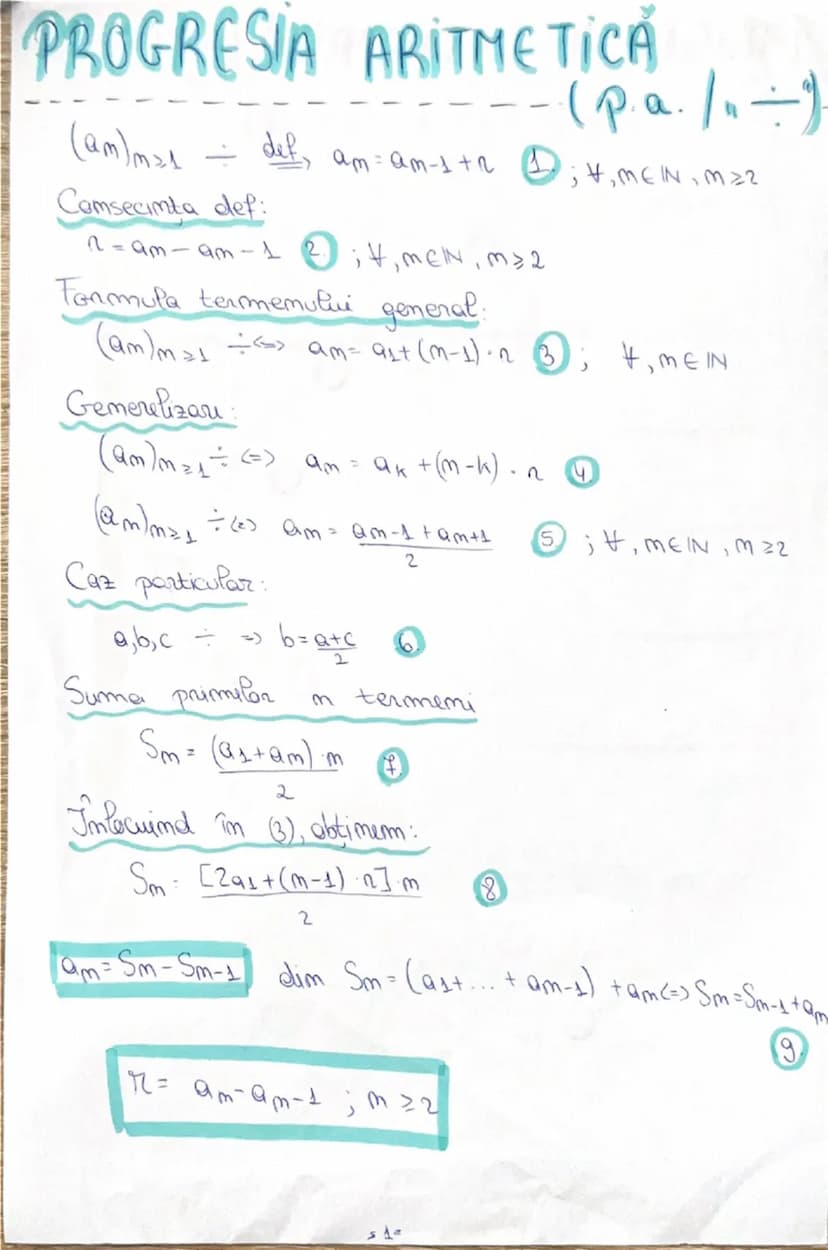 PROGRESIA ARITMETICĂ
(p.a. / „ ÷ ”)
(an)n≥1 ÷ def, an = an-1 + r 1. ; ∀, n ∈ ℕ, n ≥ 2
Consecința def:
r = an - an-1 2. ; ∀, n ∈ ℕ, n ≥ 2
Formula termenului general:
(an)n≥1 ÷ <=> an = a1 + (n-1) · r 3) ; ∀, n ∈ ℕ
Generelizare:
(an)n≥1 ÷ <=> an = ak + (n-k) · r 4.
(an)n≥1 ÷ <=> an = (an-1 + an+1)/2 5. ; ∀, n ∈ ℕ, n ≥ 2
Caz particular:
a,b,c ÷ => b = (a+c)/2 6.
Suma primilor n termeni
Sn = (a1 + an) · n / 2 7.
Înlocuind în (3), obținem:
Sn = [2a1 + (n-1) · r] · n / 2 8
an = Sn - Sn-1 din Sn = (a1 + ... + an-1) + an <=> Sn = Sn-1 + an
9.
r = an - an-1 ; n ≥ 2